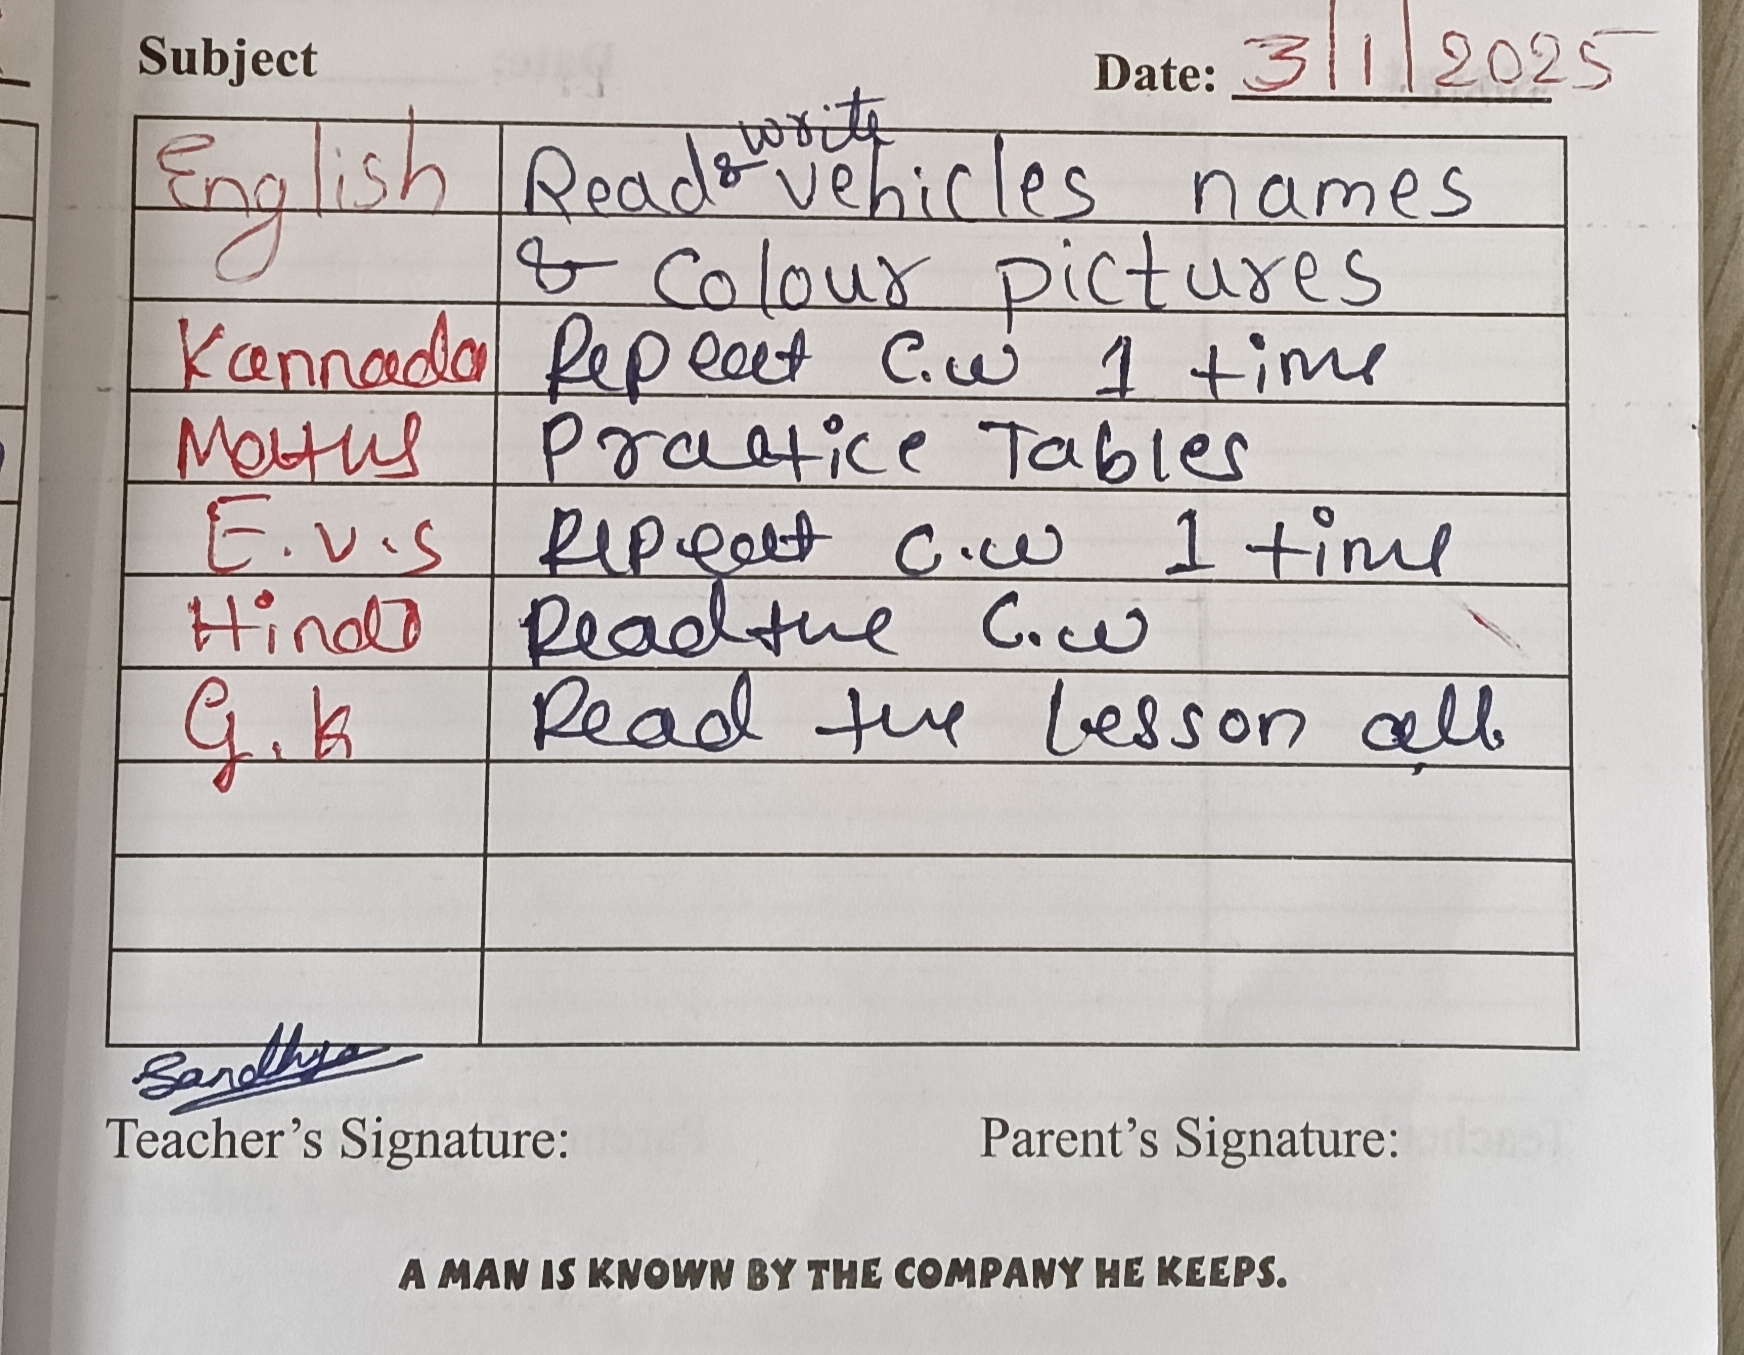 Subject Date: 3/1/2025
English Read & write vehicles names
& Colour pictures
Kannada Repeat C.W 1 time
Maths Practice Tables
E.V.S Repeat C.W 1 time
Hindi Read the C.W
G.K Read the lesson all.
Sandhya
Teacher's Signature: Parent's Signature:
A MAN IS KNOWN BY THE COMPANY HE KEEPS.